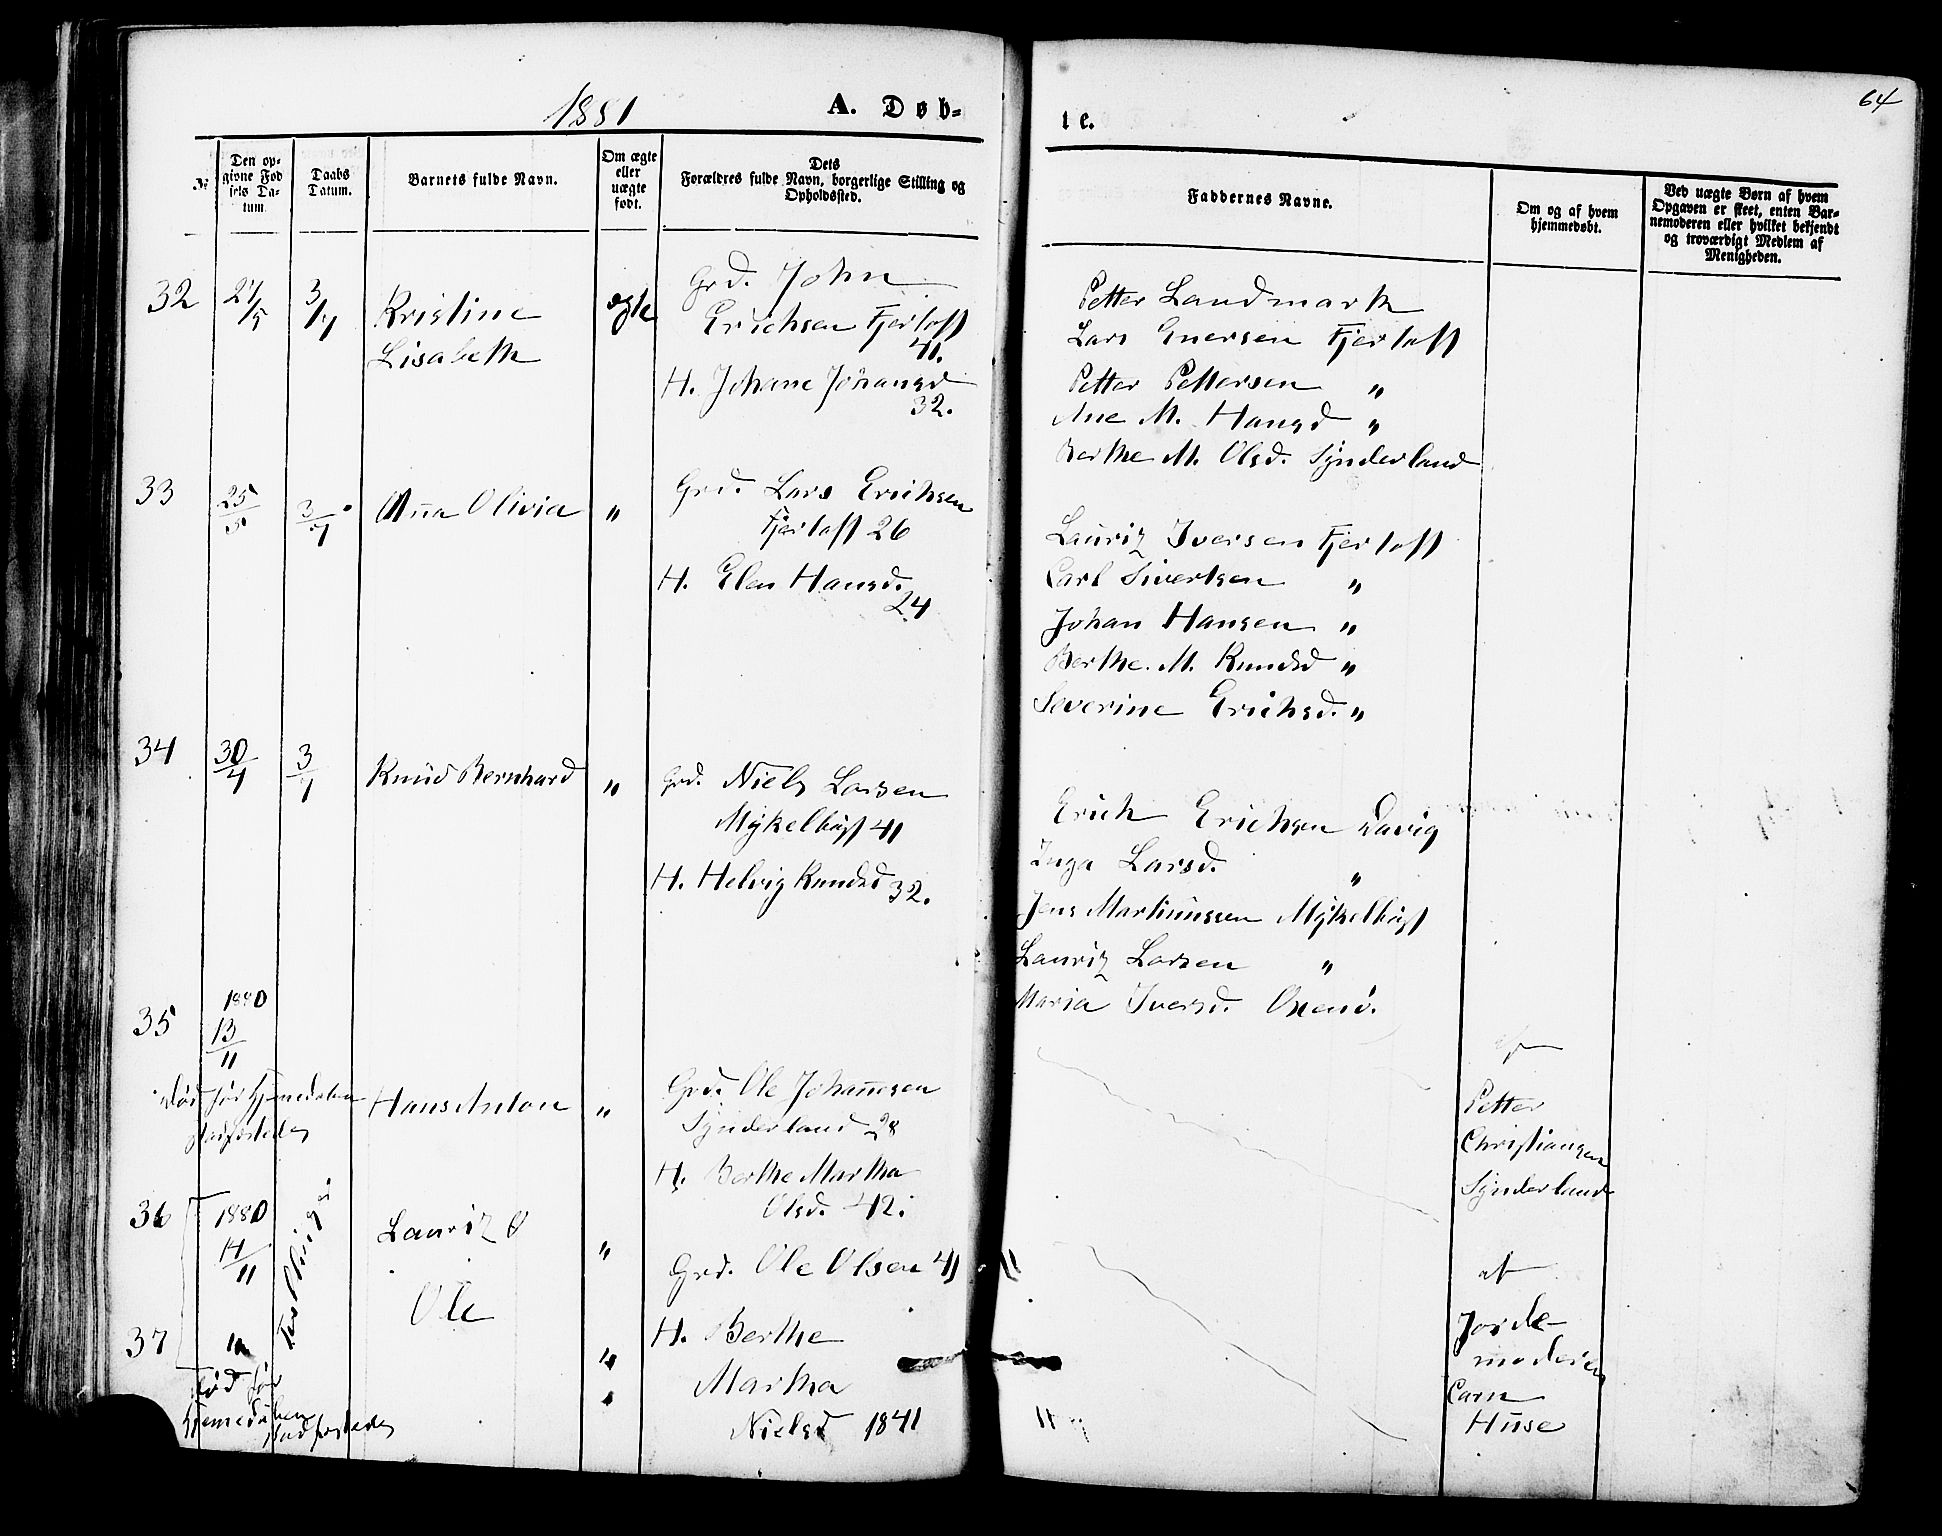 1881
A. Døb=
te.
64
№
Den op=
givne Fød
sels Da=
tum.
Daabs
Datum.
Barnets fulde Navn.
Om ægte
eller
uægte
født.
Dets
Forældres fulde Navn, borgerlige Stilling og
Opholdssted.
Faddernes Navne.
Om og af hvem
hjemmedøbt.
Ved uægte Børn af hvem
Opgaven er skeet, enten Bar=
nemoderen eller hvilket bekjendt
og troværdigt Medlem af
Menigheden.
32
3/7
Kristine
Lisabeth
ægte
Grd. John
Erichsen Fjertoft
41.
H. Johane Johansd
32.
Petter Landmark
Lars Enersen Fjertoft
Petter Pettersen "
Ane M. Hansd "
Berthe M. Olsd. Synderland
33
25/5
3/7
Anna Olivia
"
Grd. Lars Erichsen
Fjertoft 26
H. Elen Hansd.
24
Lauriz Iversen Fjertoft
Carl Sivertsen "
Johan Hansen "
Berthe M. Knudsd "
Severine Erichsd. "
34
30/4
3/7
Knud Bernhard
"
Grd. Niels Larsen
Mykelbust 41
H. Helvig Knudsd 32.
Erich Erichsen
Inga Larsd. "
Jens Martinussen Mykelbust
Lauriz Larsen "
Maria Iversd. Uxenø.
35
1880
13/11
Død før
Hans Anton
"
Grd. Ole Johannesen
Synderland 28
H. Berthe Martha
Olsd. 42.
af
Petter
Christiansen
Synderland
36
1880
14/11
Tvillinger
Lauriz O
"
Grd. Ole Olsen 41
H. Berthe
Martha
Nielsd 1841
af
Jorde-
moderen
Carn
Huse
37
"
Ole
"
"
Død før